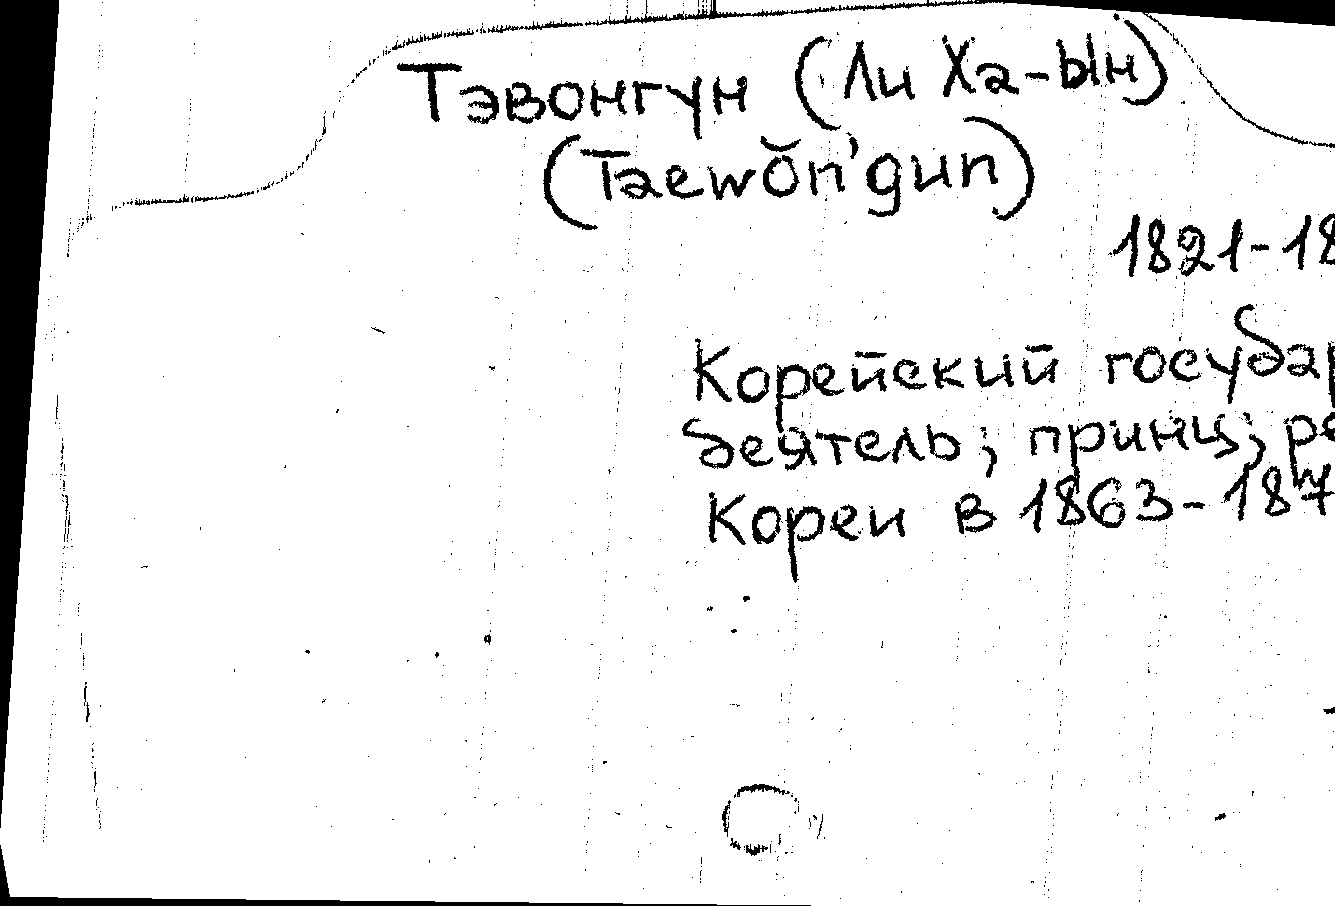 Тэвонгун (Ли Ха-ын)
(Taewŏn'gun)
1821-18
Корейский государ
деятель; принц; ре
Кореи в 1863-187